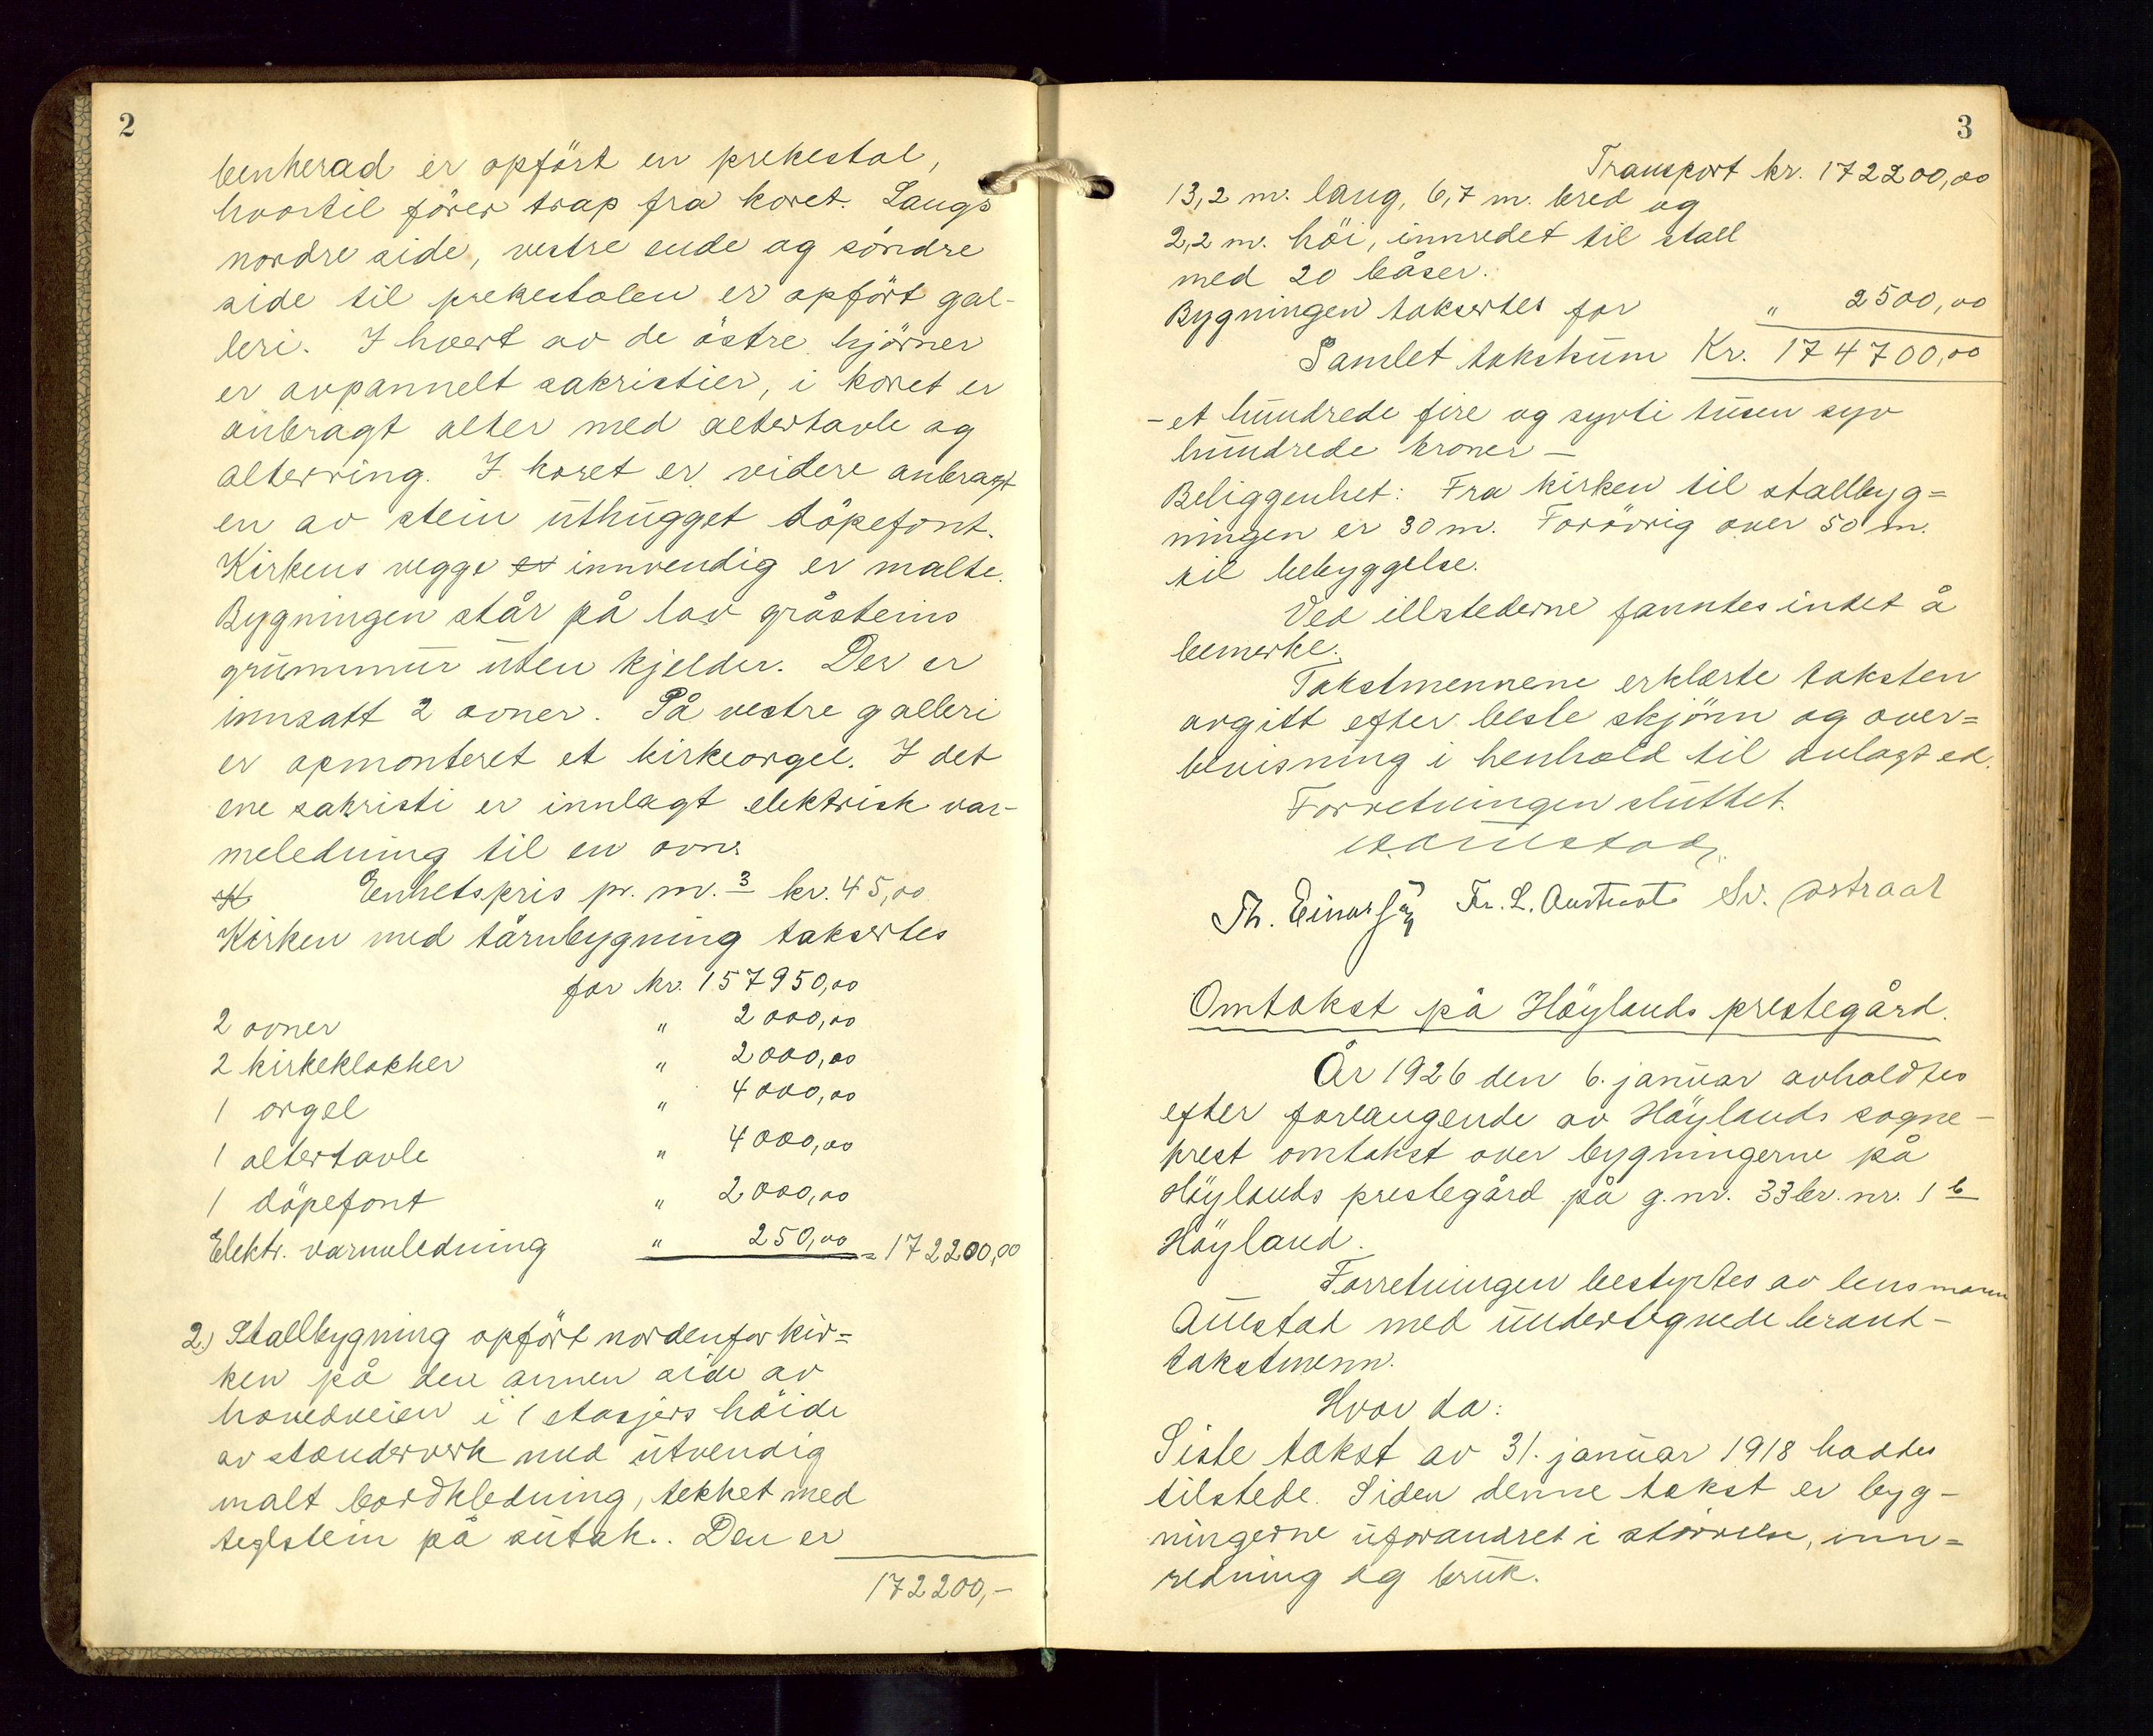 2
benherad er opfört en prekestol,
hvortil förer trap fra koret. Langs
nordre side, vestre ende og söndre
side til prekestolen er opfört gal-
leri. I hvert av de östre hjörner
er avpannelt sakristier, i koret er
anbragt alter med altertavle og
alterring. I koret er videre anbragt
en av stein uthugget döpefont.
Kirkens vegge er innvendig er malte.
Bygningen står på lav gråsteins
grunnmur uten kjelder. Der er
innsatt 2 ovner. På vestre galleri
er opmonteret et kirkeorgel. I det
ene sakristi er innlagt elektrisk var-
meledning til en ovn.
K Enhetspris pr. m.3 kr. 45,00
Kirken med tårnbygning taksertes
for kr. 157950,00
2 ovner " 2000,00
2 kirkeklokker " 2000,00
1 orgel " 4000,00
1 altertavle " 4000,00
1 döpefont " 2000,00
Elektr. varmeledning " 250,00 = 172200,00
2.) Stallbygning opfört nordenfor kir=
ken på den annen side av
hovedveien i 1 etasjers höide
av stenderverk med utvendig
malt bordkledning, tekket med
teglstein på sutak.. Den er
172200,-
3
Transport kr. 172200,00
13,2 m. lang, 6,7 m. bred og
2,2 m. höi, innredet til stall
med 20 båser.
Bygningen taksertes for " 2500,00
Samlet takstsum Kr. 174700,00
- et hundrede fire og syvti tusen syv
hundrede kroner -
Beliggenhet: Fra kirken til stallbyg=
ningen er 30 m. Forövrig over 50 m.
til bebyggelse.
Ved illstederne fanntes intet å
bemerke.
Takstmennene erklærte taksten
avgitt efter beste skjönn og over=
bevisning i henhold til avlagt ed.
Forretningen sluttet.
Th. Sv. Østraat
Omtakst på Höylands prestegård.
År 1926 den 6. januar avholdtes
efter forlangende av Höylands sogne-
prest omtakst over bygningerne på
Höylands prestegård på g.nr. 33 br. nr. 1 b
Höyland.
Forretningen bestyrtes av lensmann
Austad med undertegnede brand-
takstmenn.
Hvor da:
Siste takst av 31. januar 1918 haddes
tilstede. Siden denne takst er byg-
ningerne uforandret i störrelse, inn=
redning og bruk.